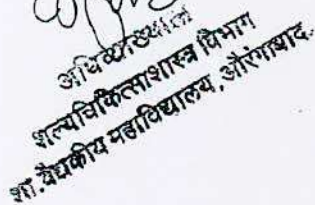 अधिव्याख्याता
शल्यचिकित्साशास्त्र विभाग
शा. वैद्यकीय महाविद्यालय, औरंगाबाद.